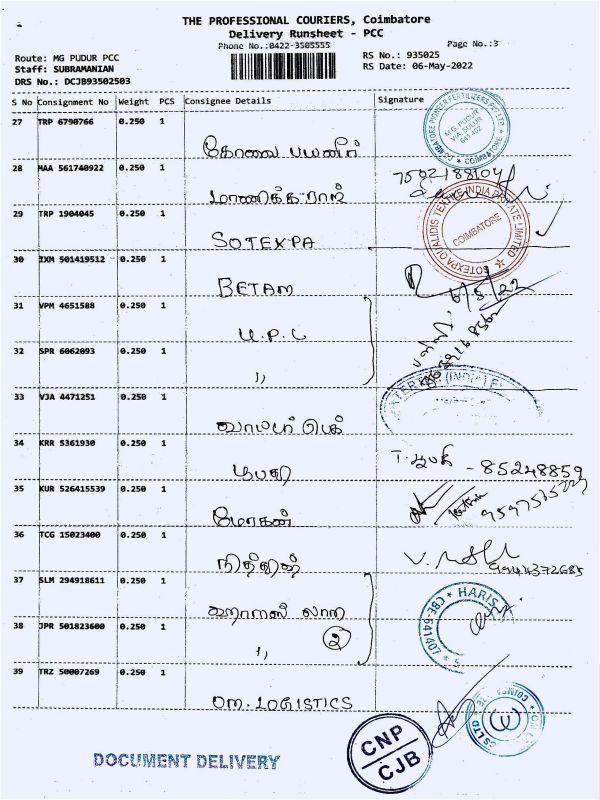 THE PROFESSIONAL COURIERS, Coimbatore
Delivery Runsheet - PCC
Phone No.:0422-3505555
Page No.:3
Route: MG PUDUR PCC
Staff: SUBRAMANIAN
DRS No.: DCJB93502503
RS No.: 935025
RS Date: 06-May-2022
S No Consignment No Weight PCS Consignee Details Signature
27 TRP 6790766 0.250 1
கோவை பயனீர்
28 MAA 561740922 0.250 1
மாணிக்கராஜ்
29 TRP 1904045 0.250 1
SOTEXPA
COIMBATORE
30 IXM 501419512 0.250 1
BETAM
6/5/22
31 VPM 4651588 0.250 1
U.P.C
32 SPR 6062093 0.250 1
,,
33 VJA 4471251 0.250 1
34 KRR 5361930 0.250 1
- 85248859
35 KUR 526415539 0.250 1
மோகன்
36 TCG 15023400 0.250 1
37 SLM 294918611 0.250 1
HARIS
CBE-641407
38 JPR 501823600 0.250 1
,, 2
39 TRZ 50007269 0.250 1
OM. LOGISTICS
CNP
CJB
DOCUMENT DELIVERY